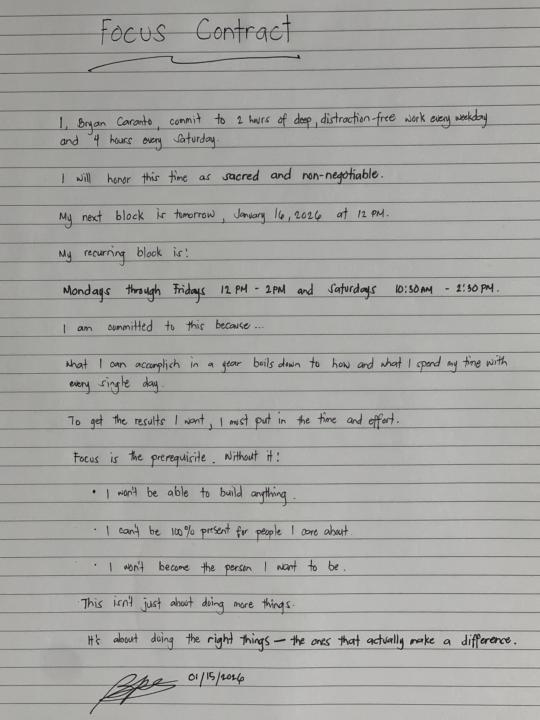 Focus Contract
I, Bryan Caranto, commit to 2 hours of deep, distraction-free work every weekday
and 4 hours every Saturday.
I will honor this time as sacred and non-negotiable.
My next block is tomorrow, January 16, 2026 at 12 PM.
My recurring block is:
Mondays through Fridays 12 PM - 2PM and Saturdays 10:30 AM - 2:30 PM.
I am committed to this because...
What I can accomplish in a year boils down to how and what I spend my time with
every single day.
To get the results I want, I must put in the time and effort.
Focus is the prerequisite. Without it:
• I won't be able to build anything.
• I can't be 100% present for people I care about.
• I won't become the person I want to be.
This isn't just about doing more things.
It's about doing the right things — the ones that actually make a difference.
01/15/2026